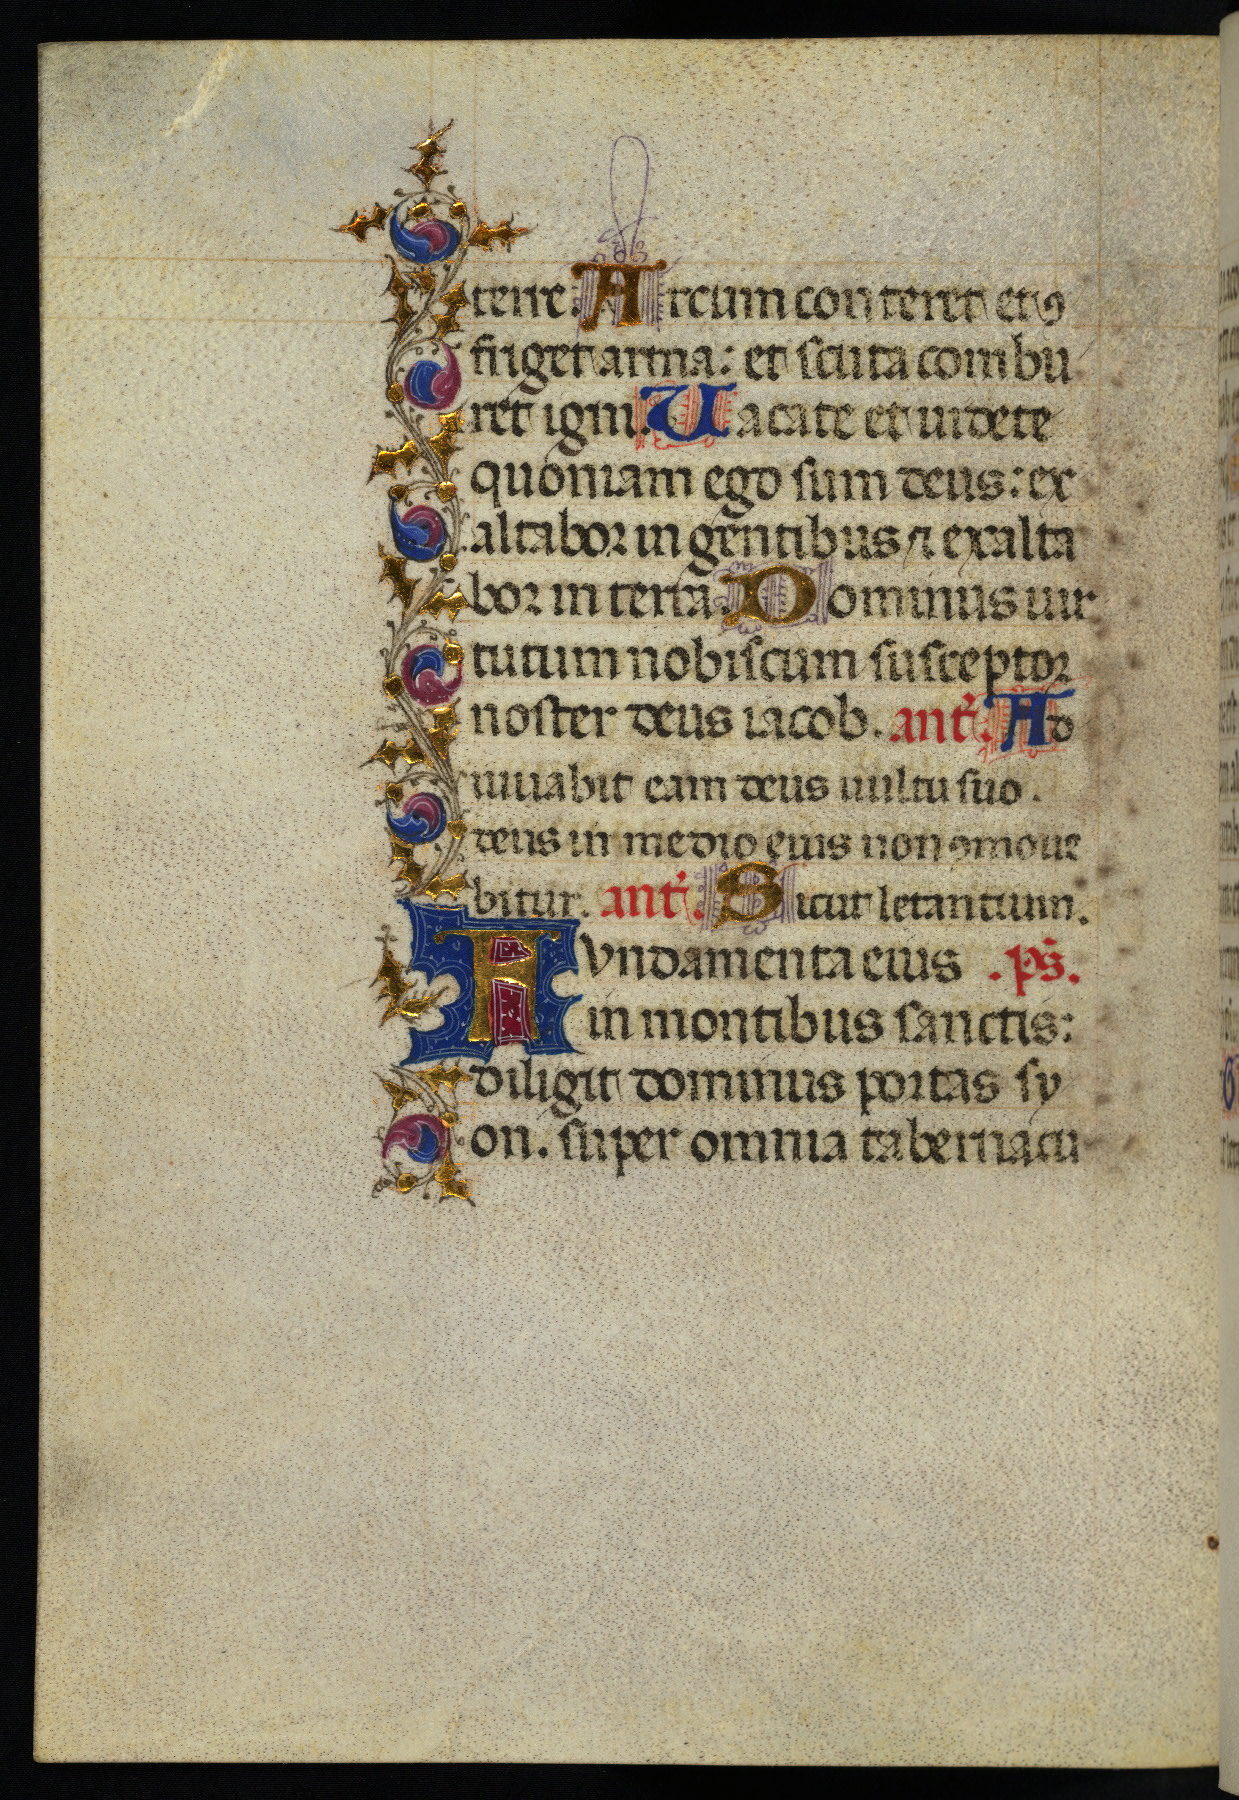 terre. Arcum conteret et ꝯ
friget arma: et scuta combu
ret igni. Uacate et uidete
quoniam ego sum deus: ex
altabor in gentibus ⁊ exalta
bor in terra. Dominus uir
tutum nobiscum susceptor
noster deus iacob. ant̃. Ad
iuuabit eam deus uultu suo.
deus in medio eius non ꝯmoue
bitur. ant̃. Sicut letantium.
Aundamenta eius .p̃s.
in montibus sanctis:
diligit dominus portas sy
on. super omnia tabernacu